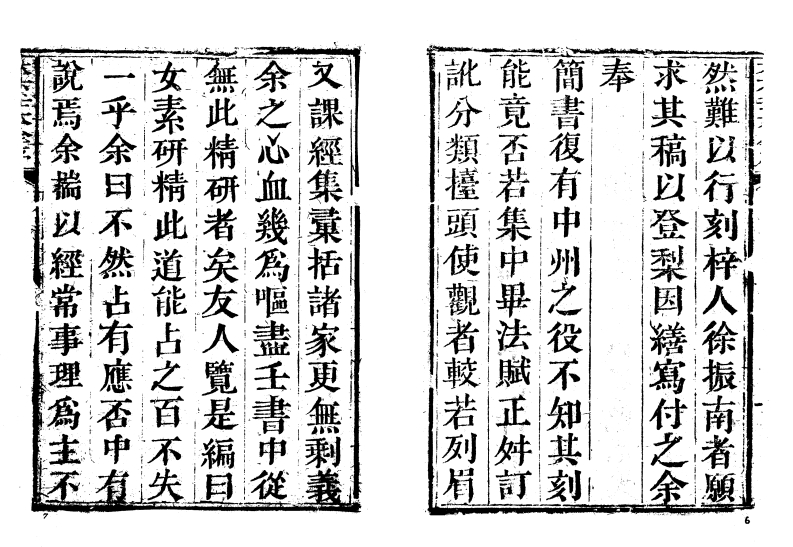 然難以行刻梓人徐振南者願
求其稿以登梨因繕寫付之余
奉
簡書復有中州之役不知其刻
能竟否若集中畢法賦正舛訂
訛分類擡頭使觀者較若列眉
6
又課經集彙括諸家更無剩義
余之心血幾為嘔盡壬書中從
無此精研者矣友人覽是編曰
女素研精此道能占之百不失
一乎余曰不然占有應否中有
說焉余揣以經常事理為主不
7